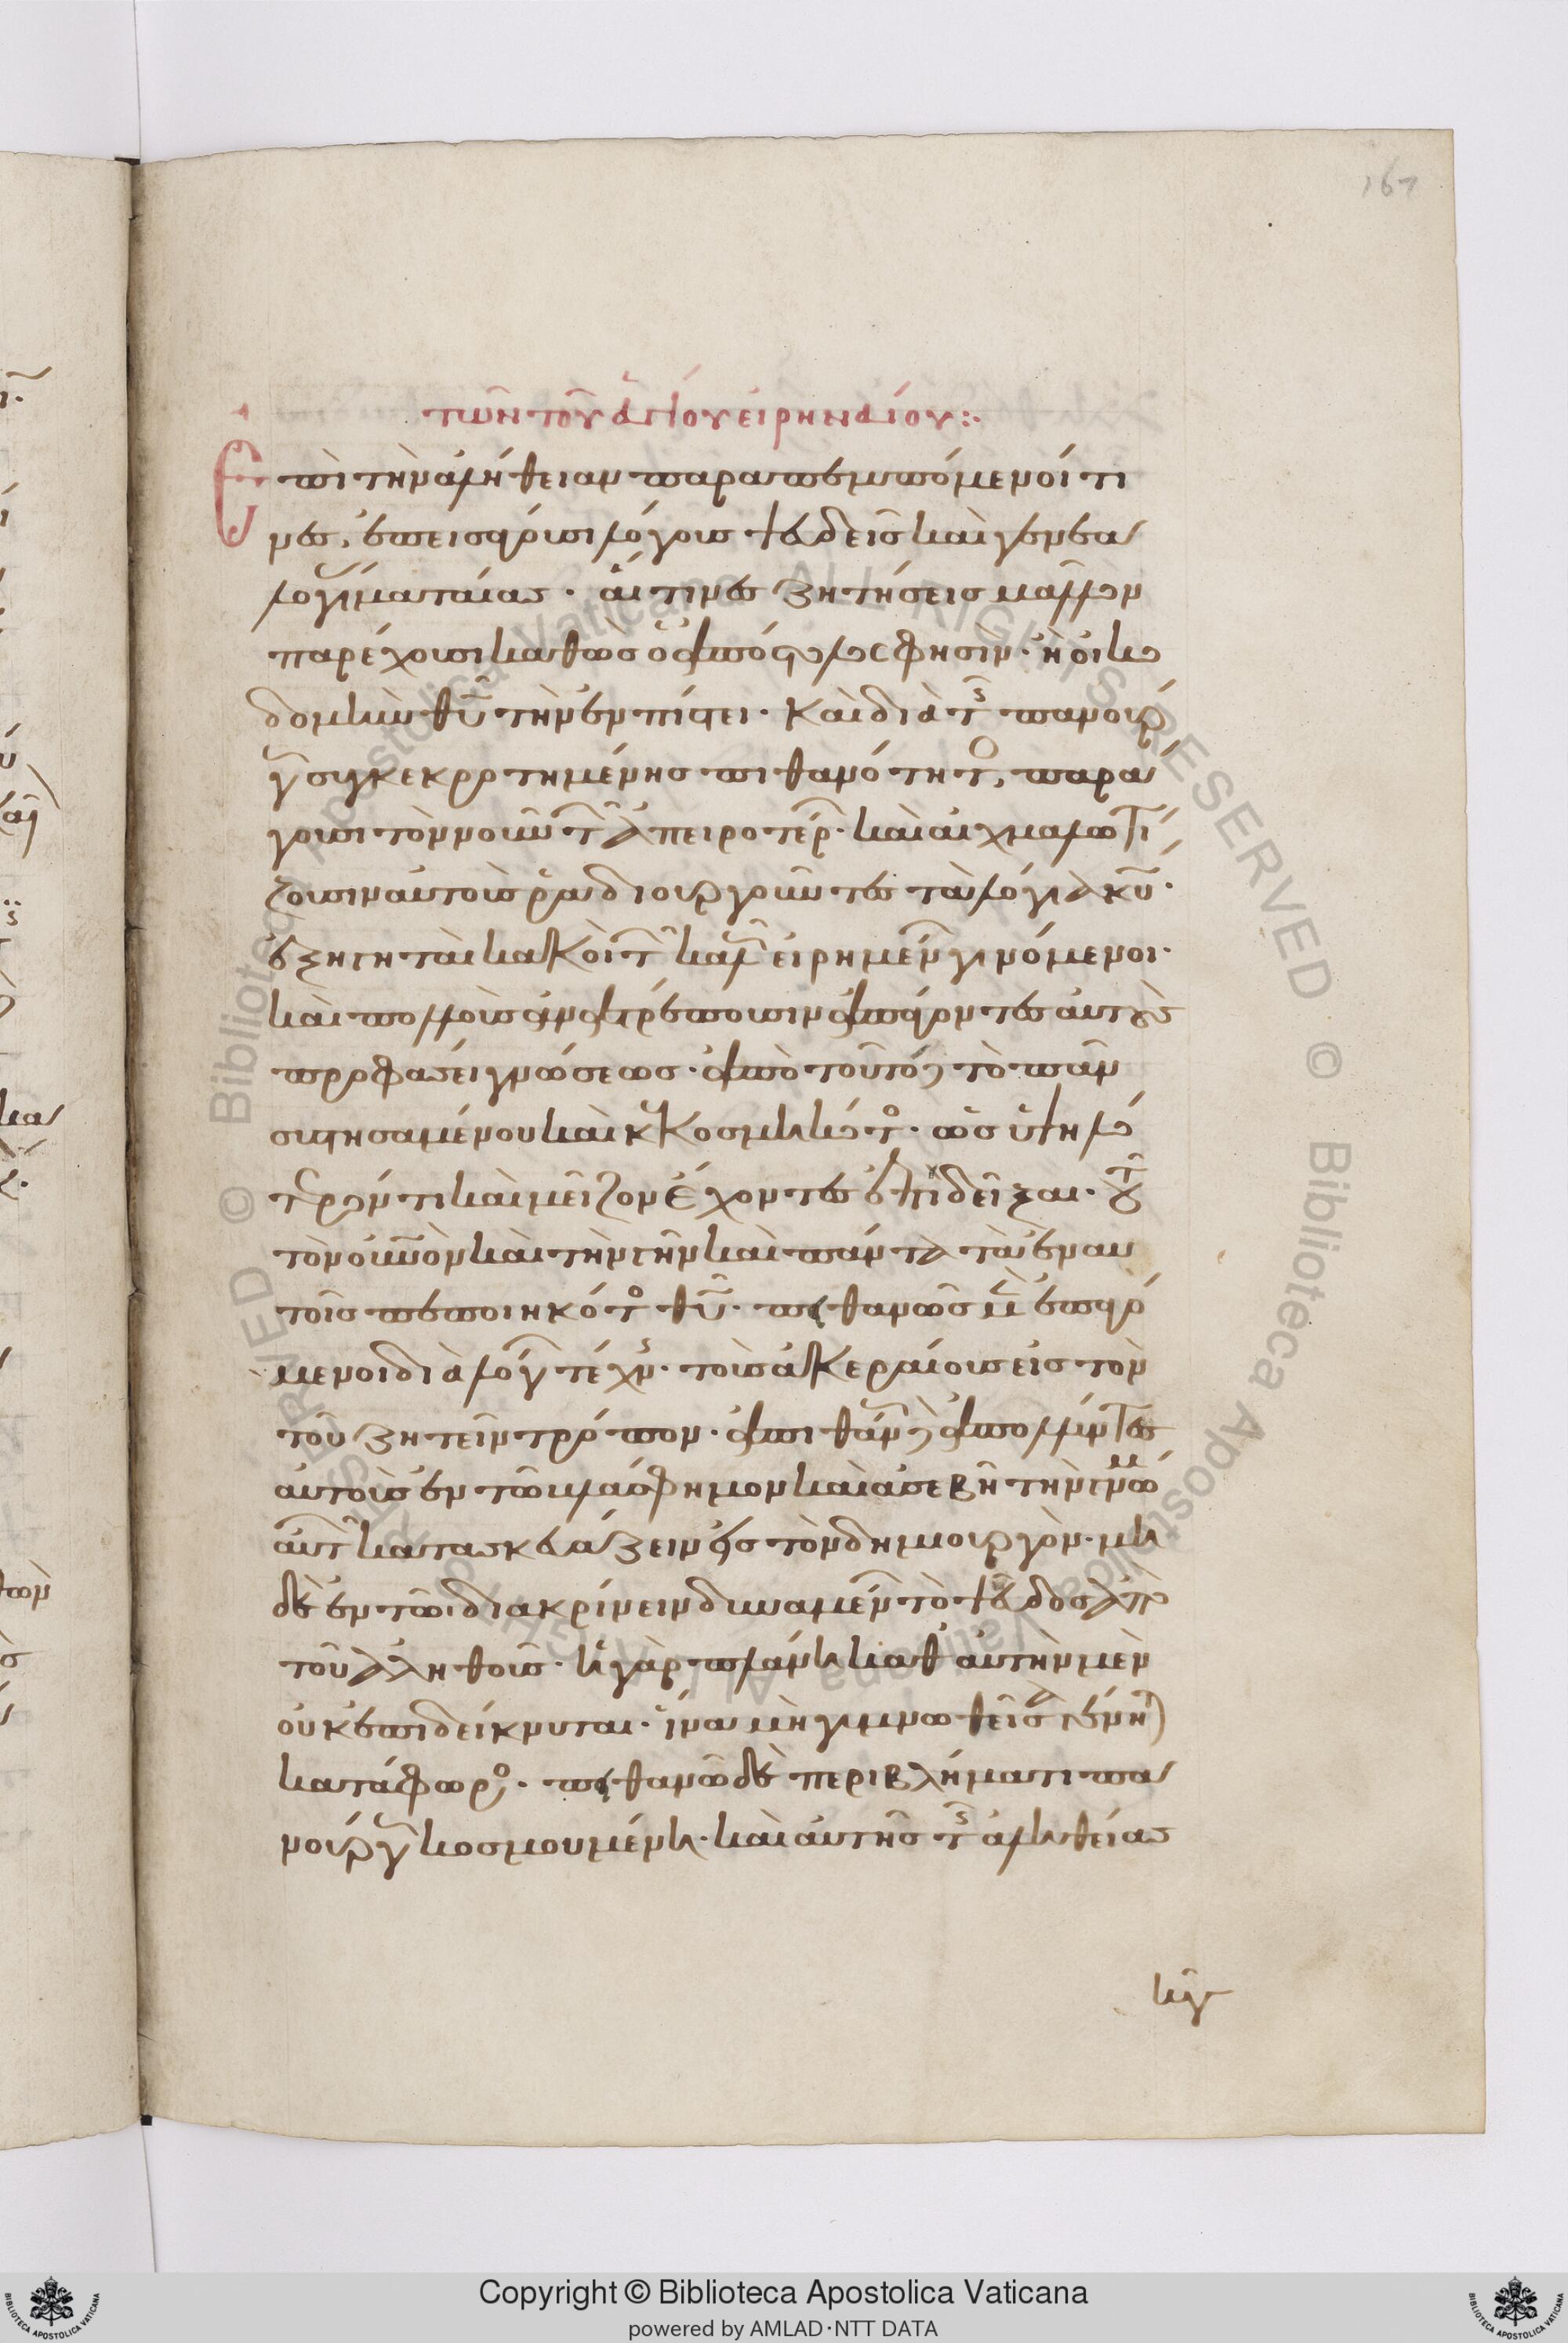 167
τῶν τοῦ ἁγίου εἰρηναίου:·
Ἐπὶ τὴν ἀλήθειαν παραπεμπόμενοί τι
νες, ἐπεισφέρουσι λόγους ψευδεῖς καὶ γενεα
λογί ματαίας. αἵτινες ζητήσεις μᾶλλον
παρέχουσι καθὼς ὁ ἀπόστολος φησίν· ἢ οἰκο
δομὴν θῦ τὴν ἐν πίστει. καὶ διὰ τῆς πανουρ
γ συγκεκροτημένης πιθανότητο, παρά
γουσι τὸν νοῦν τῶν ἀπειροτέρ. καὶ αἰχμαλωτί
ζουσιν αὐτοὺς ῥαδιουργοῦντες τὰ λόγια κυ.
ἐξηγηταὶ κακοὶ τῶν καλῶ εἰρημένων γινόμενοι.
καὶ πολλοὺς ἀνατρέπουσιν ἀπάγοντες αὐτοὺς
προφάσει γνώσεως. ἀπὸ τοῦ τόδε τὸ πᾶν
συστησαμένου καὶ κεκοσμηκότο. ὡς ὑψηλό
τερόν τι καὶ μεῖζον ἔχοντες ἐπιδεῖξαι. τοῦ
τὸν οὐνὸν καὶ τὴν γῆν καὶ πάντα τὰ ἐν αυ
τοῖς πεποιηκότο θῦ. πιθανῶς μὲν ἐπαγό
μενοι διὰ λόγ τέχν. τοὺς ἀκεραίους εἰς τὸν
τοῦ ζητεῖν τρόπον. ἀπιθάν δὲ ἀπολλύντες
αὐτοὺς ἐν τῶ βλάσφημον καὶ ἀσεβῆ τὴν γνώμ
αὐτῶν κατασκευάζειν εἰς τὸν δημιουργόν. μη
δὲ ἐν τῶ διακρίνειν δυναμένων τὸ ψεῦδος ἀπὸ
τοῦ ἀληθοῦς. ἡ γὰρ πλάνη καθ αὑτὴν μὲν
οὐκ ἐπιδείκνυται. ἵνα μὴ γυμνωθεῖσα γένηται
κατάφωρο. πιθανῶ δὲ περιβλήματι πα
νούργ κοσμουμένη. καὶ αὐτῆς τῆς ἀληθείας
κγ
Copyright © Biblioteca Apostolica Vaticana
powered by AMLAD·NTT DATA